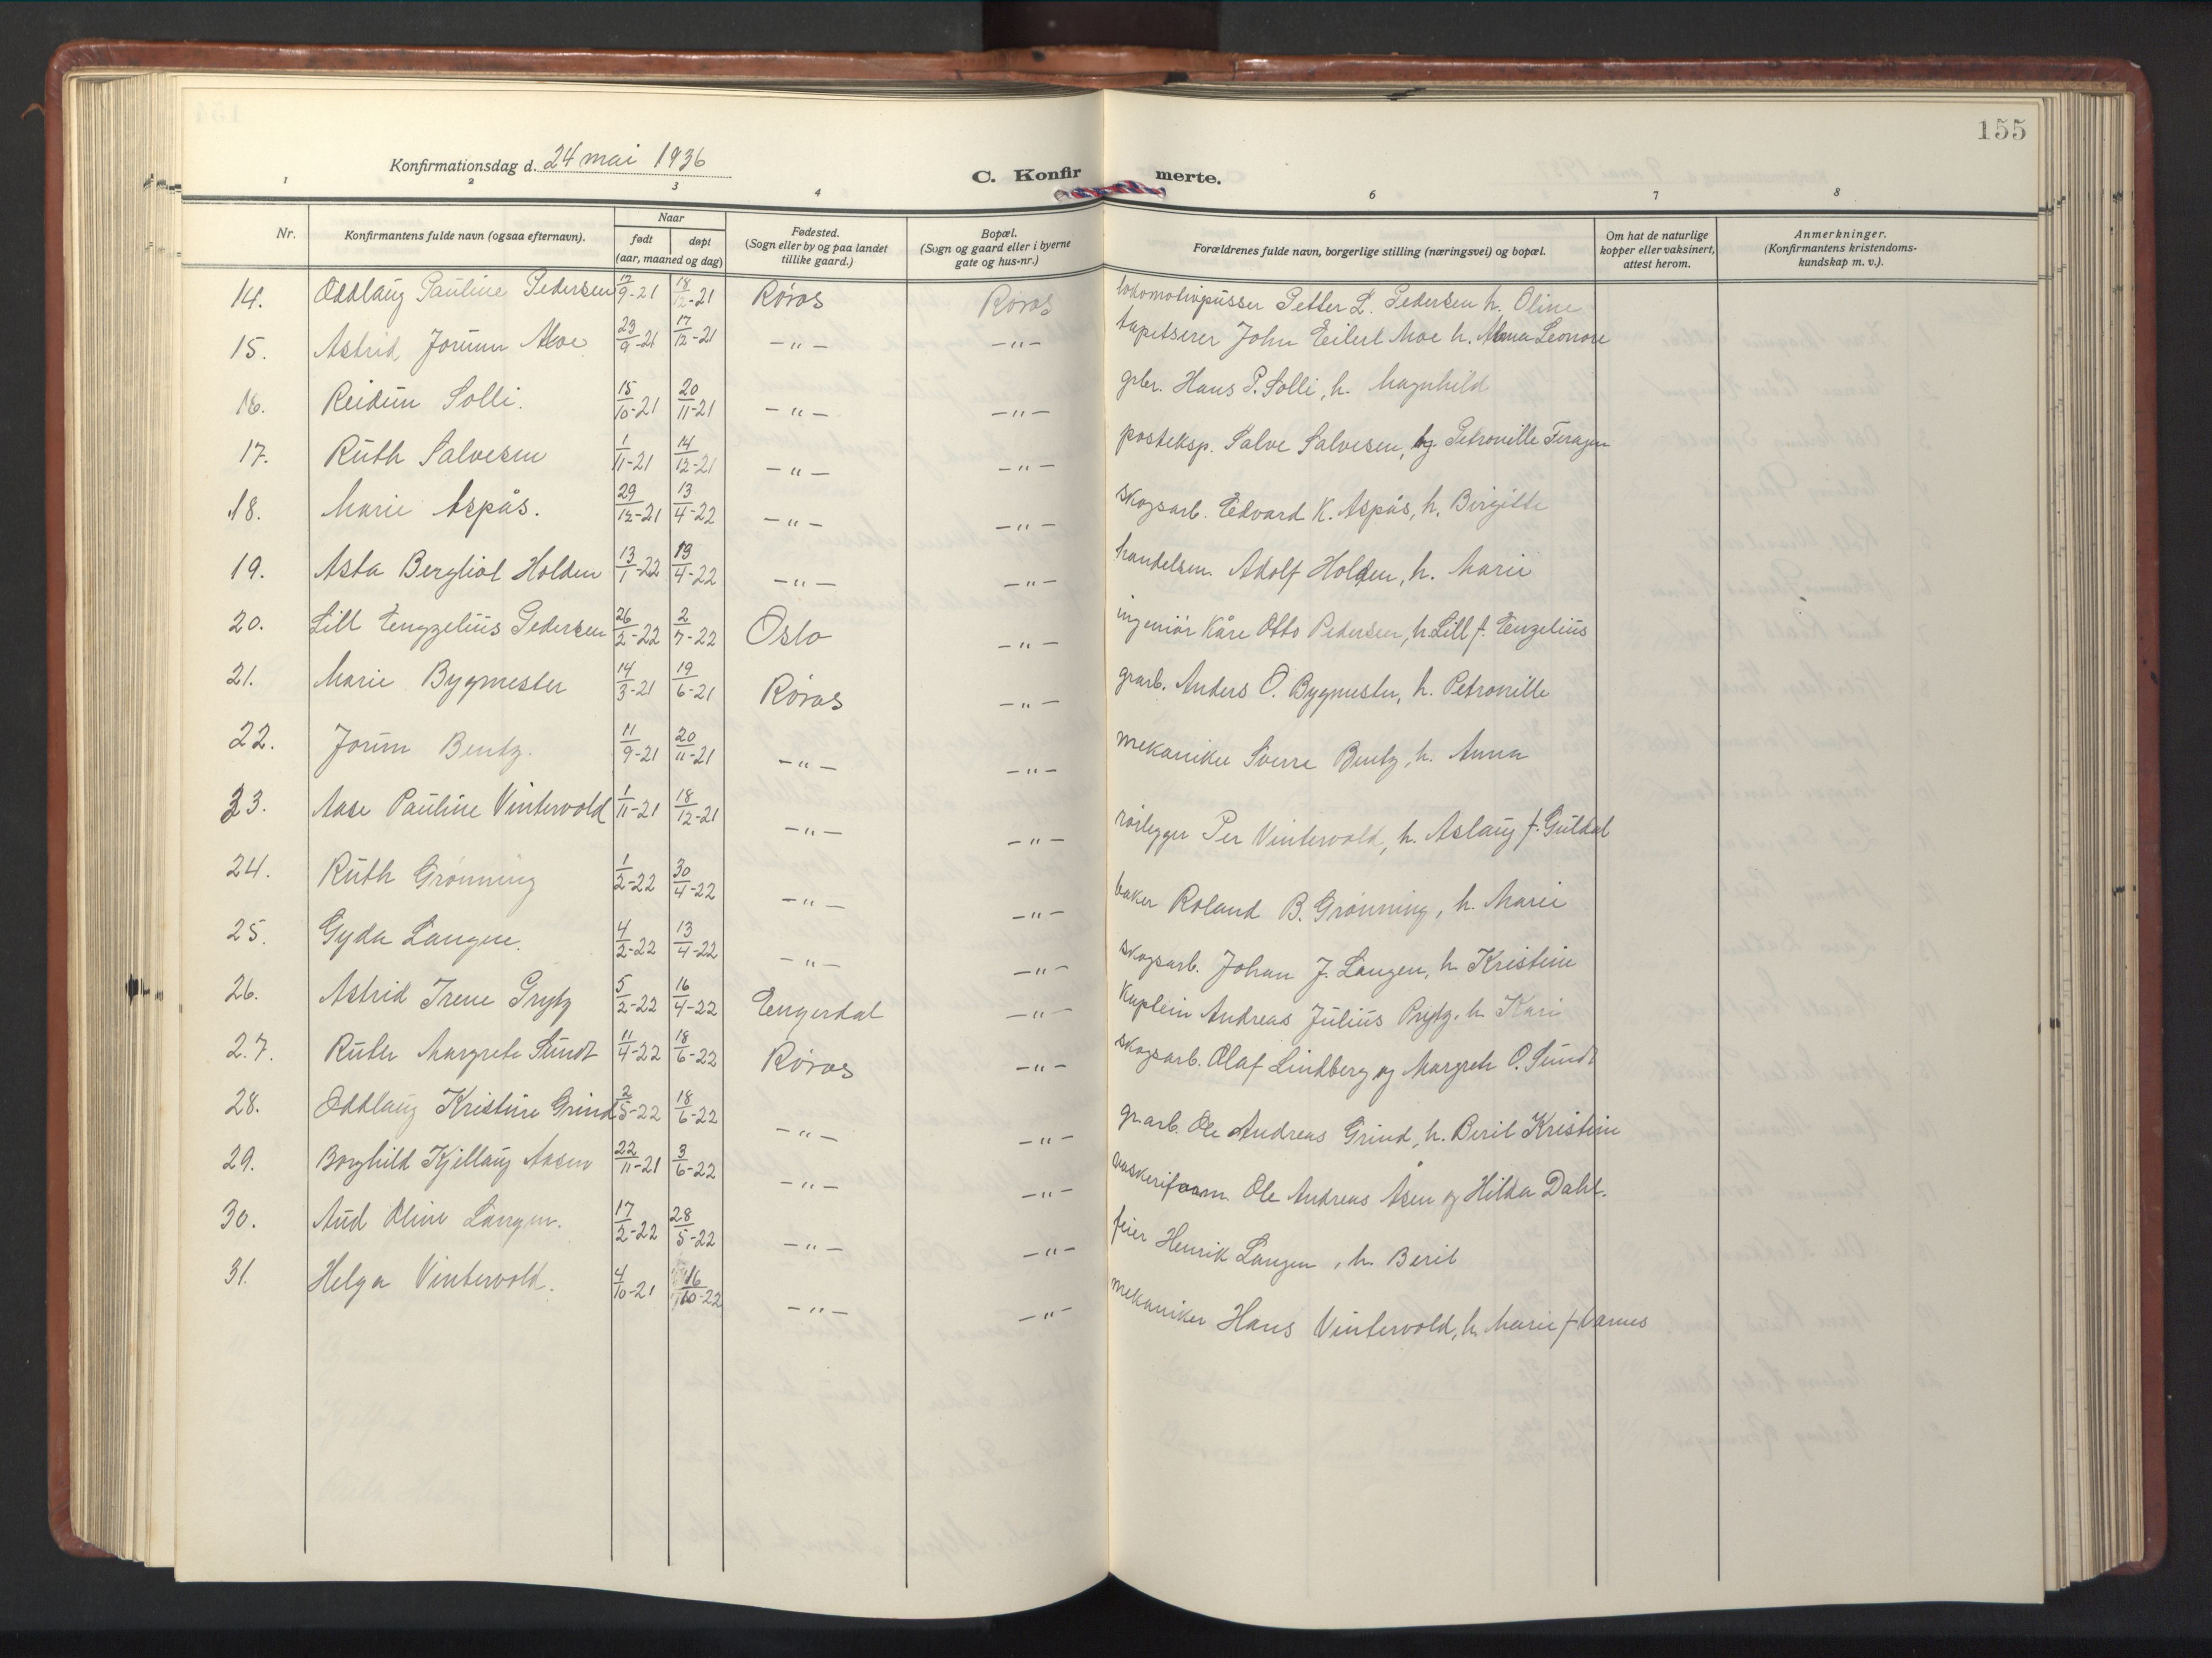 155
Konfirmationsdag d. 24 mai 1936
C. Konfirmerte.
1 2 3 4 6 7 8
Nr. Konfirmantens fulde navn (ogsaa efternavn). Naar født døpt (aar, maaned og dag) Fødested. (Sogn eller by og paa landet tillike gaard.) Bopæl. (Sogn og gaard eller i byerne gate og hus-nr.) Forældrenes fulde navn, borgerlige stilling (næringsvei) og bopæl. Om hat de naturlige kopper eller vaksinert, attest herom. Anmerkninger. (Konfirmantens kristendoms-kundskap m. v.).
14. Oddlaug Pauline Pedersen 12/9-21 18/12-21 Røros Røros lokomotivpusser Petter L. Pedersen h. Oline
15. Astrid Jorunn Moe 23/9-21 17/12-21 -"- -"- tapetserer John Eilert Moe h. Alma Leonore
16. Reidun Solli. 15/10-21 20/11-21 -"- -"- grbr. Hans P. Solli, h. Magnhild
17. Ruth Salvesen 1/11-21 14/12-21 -"- -"- posteksp. Salve Salvesen, og Petronille Feragen
18. Marie Aspås. 29/12-21 13/4-22 -"- -"- skogsarb. Edvard K. Aspås, h. Birgitte
19. Asta Bergliot Holden 13/1-22 19/4-22 -"- -"- handelsm. Adolf Holden, h. Marie
20. Lill Engzelius Pedersen 26/2-22 2/7-22 Oslo -"- ingeniør Kåre Otto Pedersen, h. Lill f. Engelius
21. Marie Bygmester 14/3-21 19/6-21 Røros -"- grarb. Anders O. Bygmester, h. Petronille
22. Jorun Bentz. 11/9-21 20/11-21 -"- -"- mekaniker Sverre Bentz, h. Anna
23. Aase Pauline Vintervold 1/11-21 18/12-21 -"- -"- rørlegger Per Vintervold, h. Aslaug f. Guldal
24. Ruth Grønning 1/2-22 30/4-22 -"- -"- baker Roland B. Grønning, h. Marie
25. Gyda Langen. 4/2-22 13/4-22 -"- -"- skogsarb. Johan J. Langen, h. Kristine
26. Astrid Irene Prytz 5/2-22 16/4-22 Engerdal -"- kaptein Andreas Julius Prytz, h. Kari
27. Ruth Margrete Sundt 11/4-22 18/6-22 Røros -"- skogsarb. Olaf Lindberg og Margrete O. Sundt
28. Oddlaug Kristine Grind 2/5-22 18/6-22 -"- -"- grarb. Ole Andreas Grind, h. Beril Kristine
29. Borghild Kjellaug Aasen 22/11-21 3/6-22 -"- -"- vaskeriform. Ole Andreas Åsen og Hilda Dahl.
30. Aud Oline Langen. 17/2-22 28/5-22 -"- -"- feier Henrik Langen, h. Beril
31. Helga Vintervold. 4/10-21 16/10-22 -"- -"- mekaniker Hans Vintervold, h. Marie f.